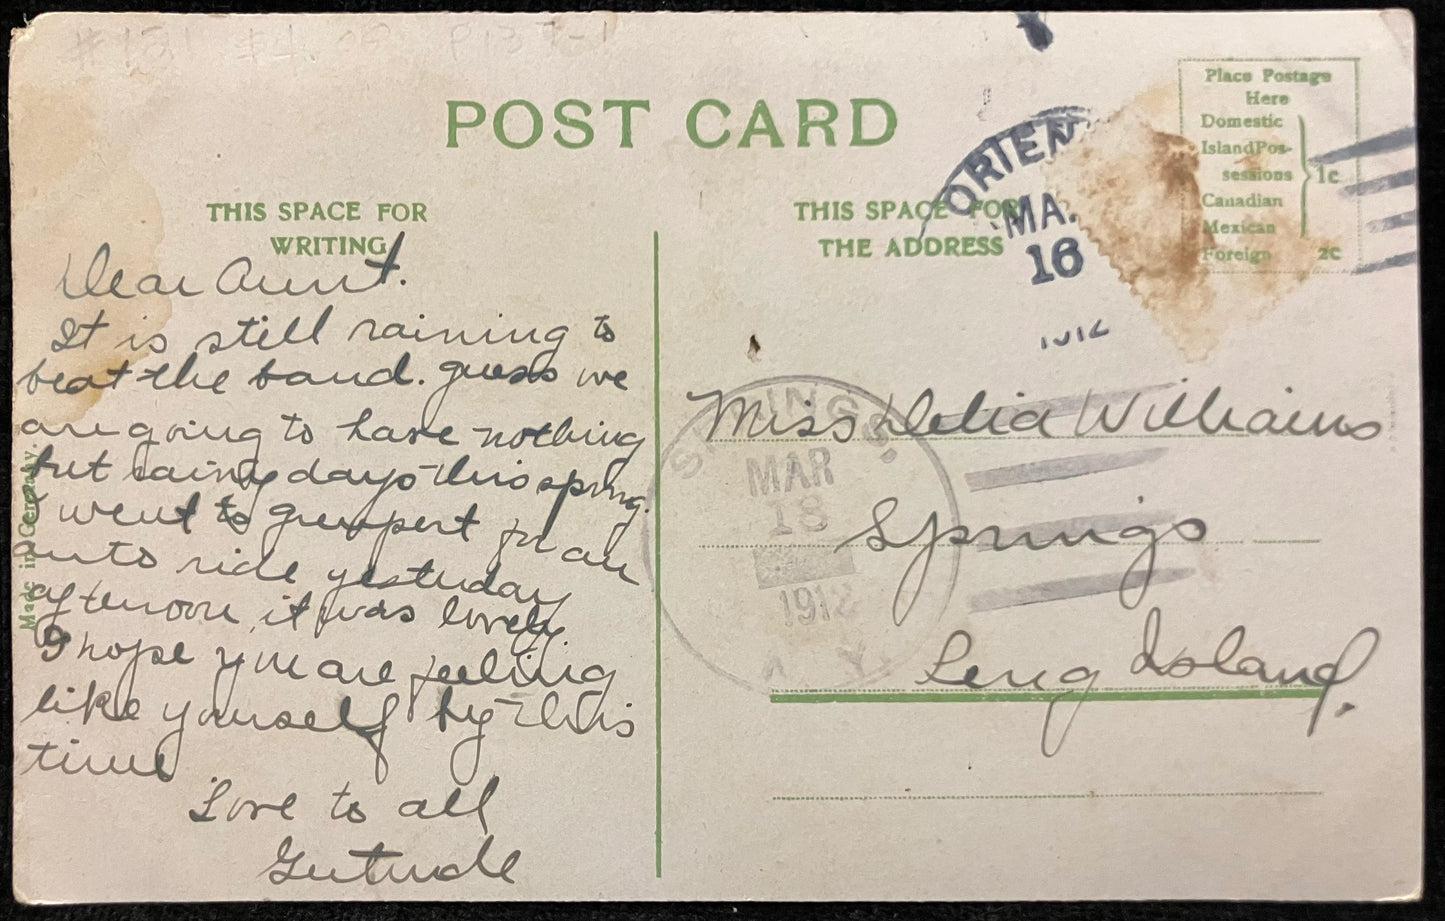 #181 $4.00 P137-1
POST CARD
Place Postage
Here
Domestic
IslandPos-
sessions
1c
Canadian
Mexican
Foreign 2c
ORIEN
MA.
16
1912
THIS SPACE FOR
WRITING
THIS SPACE FOR
THE ADDRESS
Dear Aunt.
It is still raining to
beat the band. guess we
are going to have nothing
but rainy days this spring.
I went to Greenport for an
auto ride yesterday
afternoon, it was lovely.
I hope you are feeling
like yourself by this
time
Love to all
Gertrude
Made in Germany.
SPRINGS,
MAR
18
1912
N.Y.
Miss Delia Williams
Springs
Long Island.